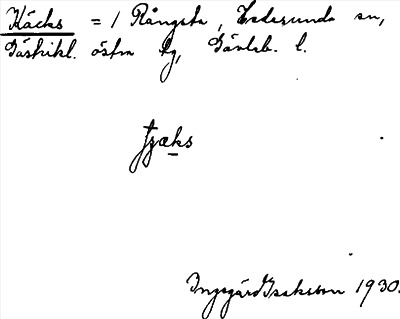 Käcks = 1 Rångsta, Hedesunda sn,
Gästrikl. östra tg, Gävleb. l.
ɟɟæks
Ingegärd Isaksson 1930.